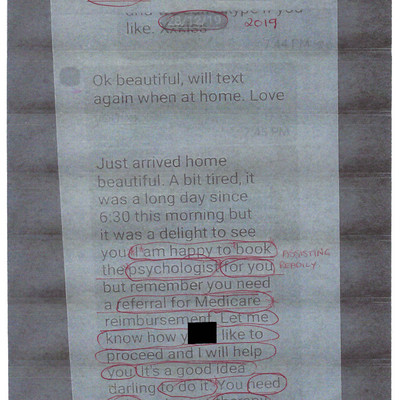 like.
28/12/19 2019
7:44 PM
Ok beautiful, will text
again when at home. Love
:45 PM
Just arrived home
beautiful. A bit tired, it
was a long day since
6:30 this morning but
it was a delight to see
you. I am happy to book ASSISTING
the psychologist for you
but remember you need
a referral for Medicare
reimbursement. Let me
know how y like to
proceed and I will help
you. It's a good idea
darling to do it. You need